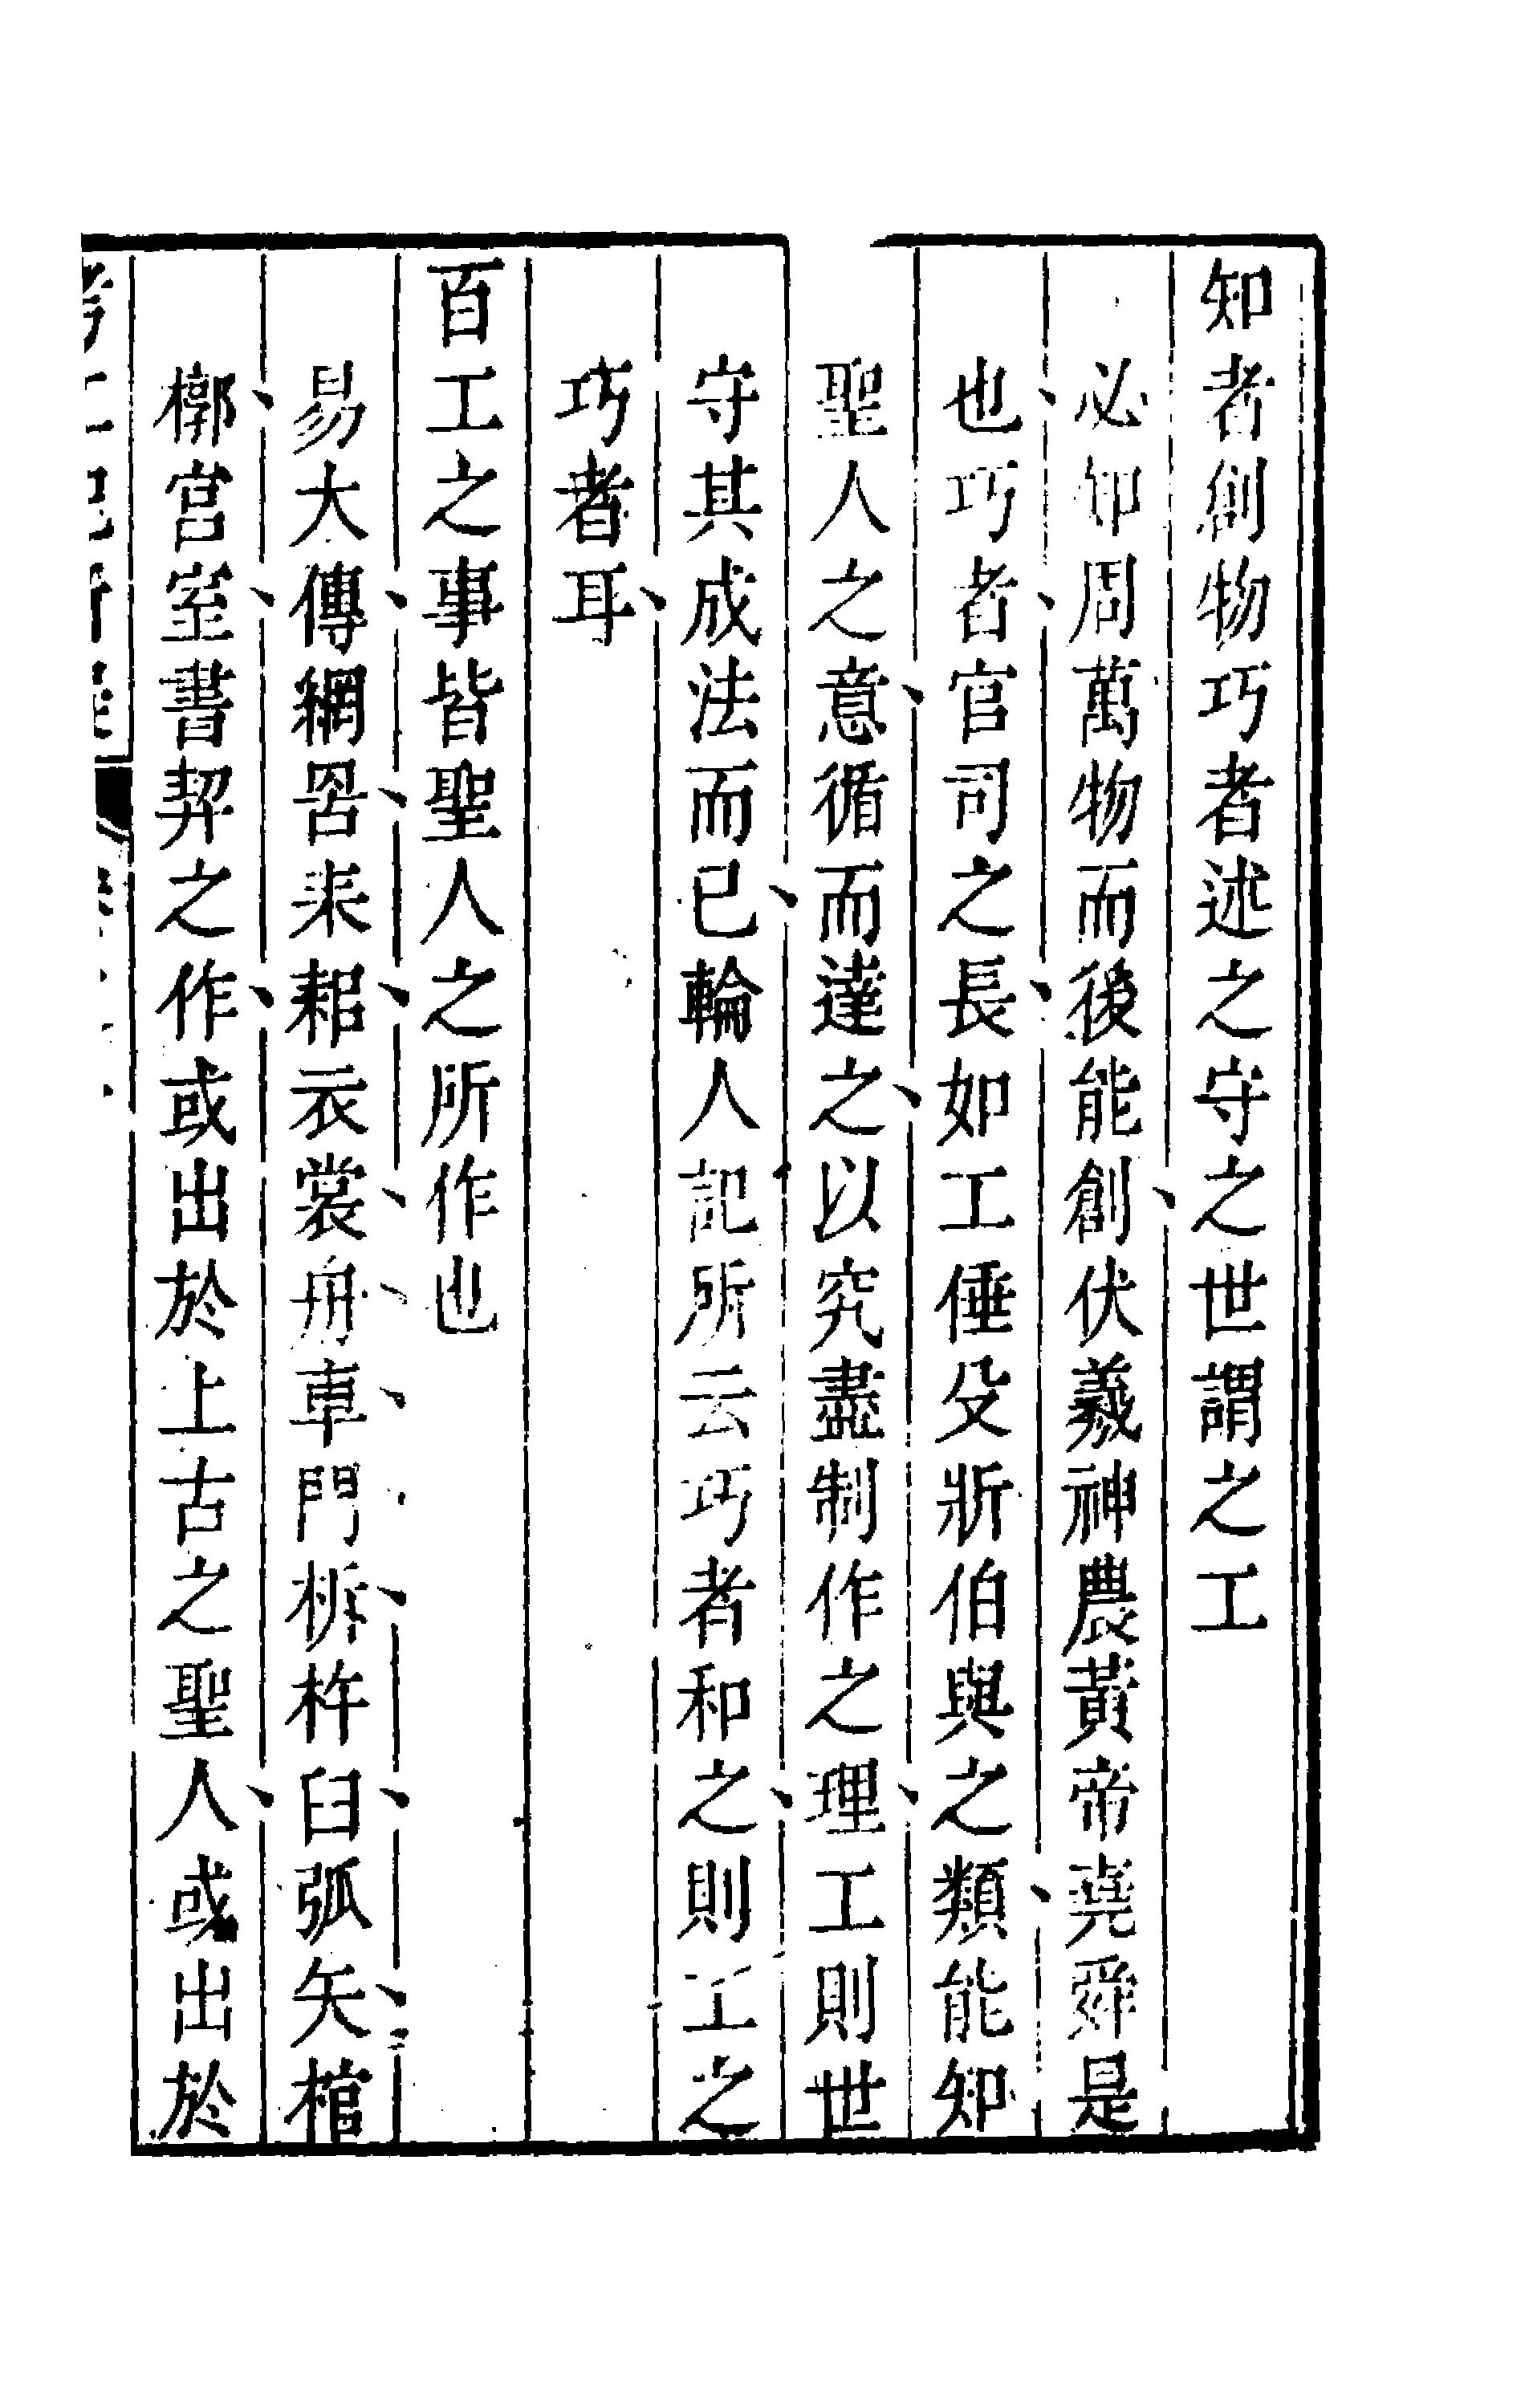 知者創物巧者述之守之世謂之工
必知周萬物而後能創伏羲神農黃帝堯舜是
也巧者官司之長如工倕殳斨伯與之類能知
聖人之意循而達之以究盡制作之理工則世
守其成法而已輪人記所云巧者和之則工之
巧者耳
百工之事皆聖人之所作也
易大傳網罟耒耜衣裳舟車門柝杵臼弧矢棺
槨宮室書契之作或出於上古之聖人或出於